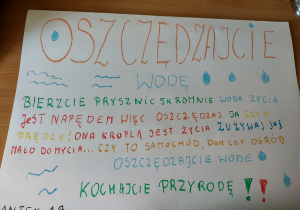 OSZCZĘDZAJCIE
WODĘ
BIERZCIE PRYSZNIC SKROMNIE WODA ŻYCIA
JEST NAPĘDEM WIĘC OSZCZĘDZAJ JĄ CZEM
PRĘDZEJ ONA KROPLĄ JEST ŻYCIA ZUŻYWAJ JEJ
MAŁO DO MYCIA... CZY TO SAMOCHÓD, DOM CZY OGRÓD
OSZCZĘDZAJCIE WODĘ
KOCHAJCIE PRZYRODĘ!!